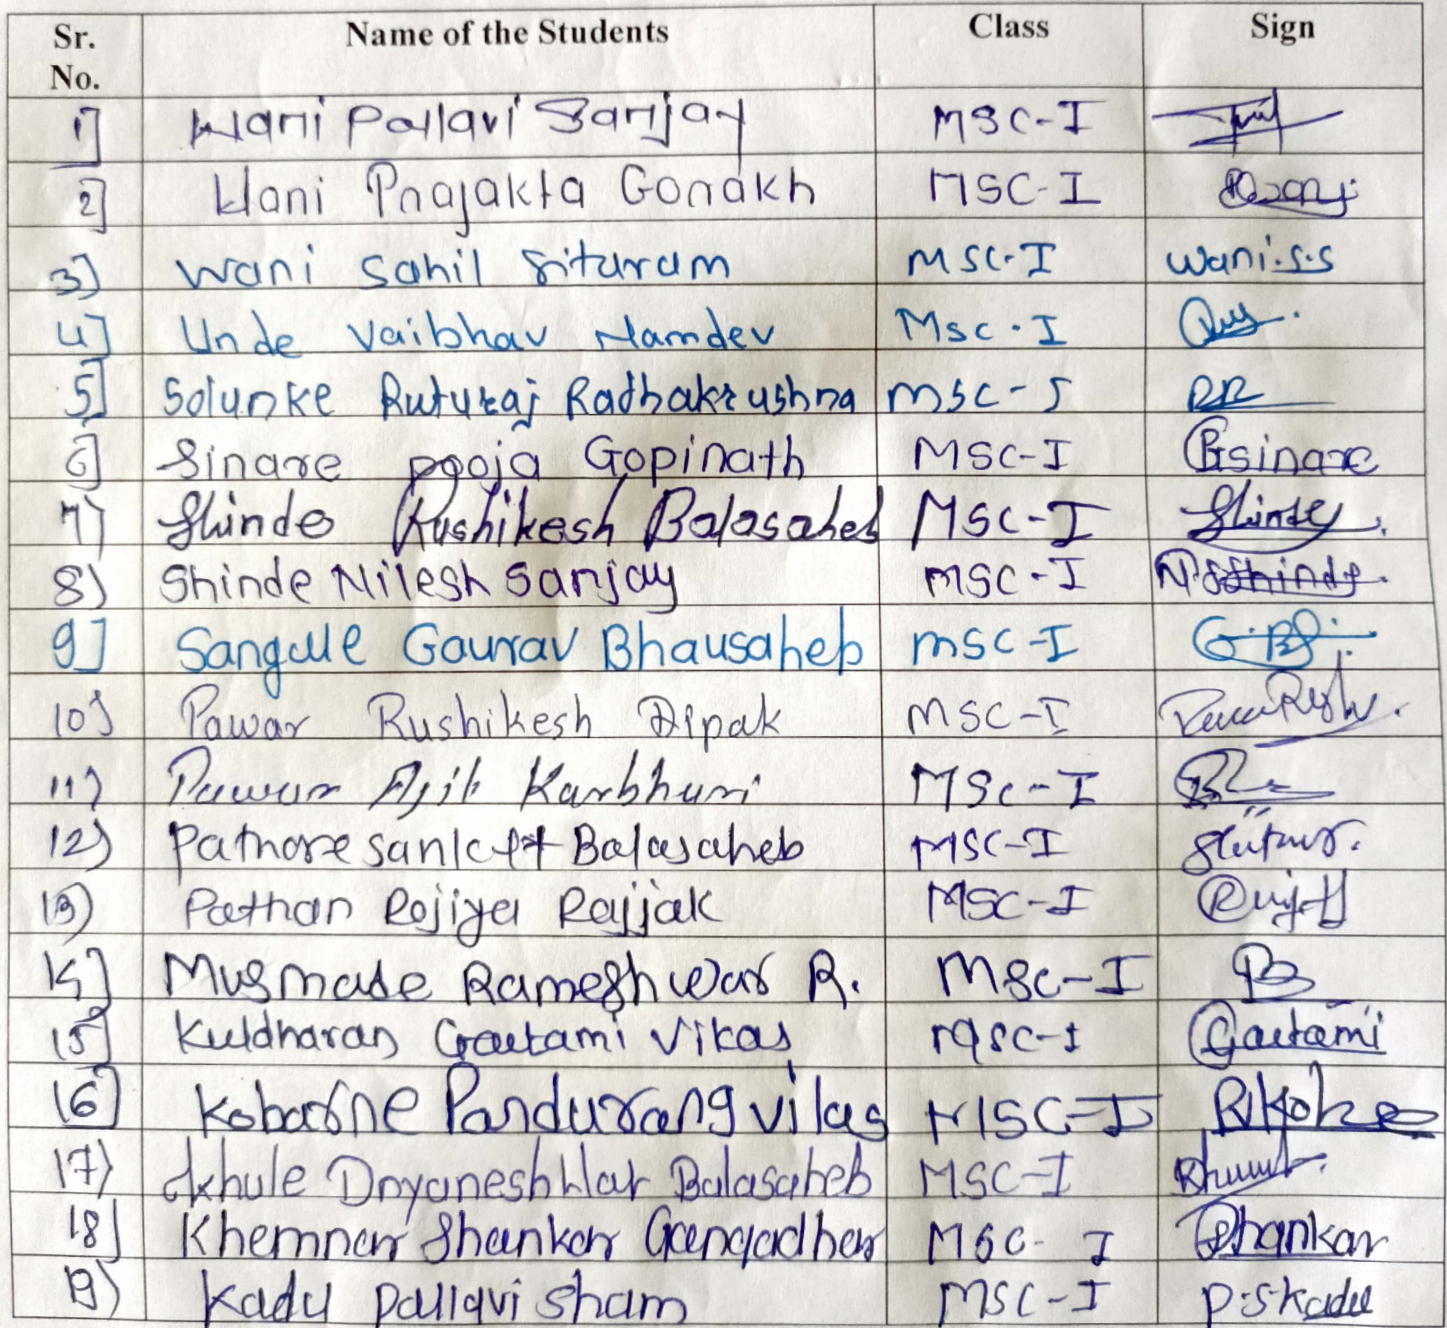 Sr. No. Name of the Students Class Sign
1] Wani Pallavi Sanjay MSC-I
2] Wani Prajakta Gorakh MSC-I
3) Wani Sahil Sitaram MSC-I Wani.S.S
4] Unde Vaibhav Namdev Msc.I
5] Solunke Ruturaj Radhakrushna MSC-I RR
6] Sinare pooja Gopinath MSC-I Gsinare
7) Shinde Rushikesh Balasaheb MSC-I Shinde
8) Shinde Nilesh Sanjay MSC-I N.S.Shinde.
9] Sangale Gaurav Bhausaheb MSC-I
10) Pawar Rushikesh Dipak MSC-I
11) Pawar Ajit Karbhari MSc-I
12) Pathore Sanket Balasaheb MSC-I
13) Pathan Rajiya Rajjak MSC-I
14] Musmade Rameshwar R. MSC-I
15] Kuldharan Gautami Vikas MSC-I Gautami
16] Kobarne Pandurang vilas MSC-I
17) Khule Dnyaneshwar Balasaheb MSC-I
18) Khemnar Shankar Gangadhar MSC-I Shankar
19) Kadu Pallavi Sham MSC-I P.S.Kadu